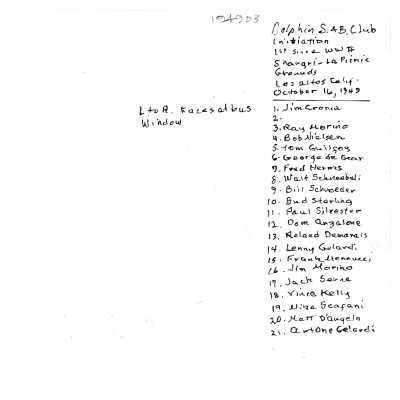 194903
Dolphin S. & B. Club
Initiation
1st since WW II
Shangri-La Picnic
Grounds
Los Altos Calif.
October 16, 1949
L to R. Faces at bus
Window
1. Jim Cronin
2.
3. Ray Morino
4. Bob Nielsen
5. Tom Guilfoy
6. George de Gear
7. Fred Herms
8. Walt Schneebeli
9. Bill Schroeder
10. Bud Starling
11. Paul Silvester
12. Dom Anzalone
13. Roland Demarais
14. Lenny Gelardi
15. Frank
16. Jim Morino
17. Jack Serne
18. Vince Kelly
19. Nina Scafani
20. Matt D'Angelo
21. Antone Gelardi